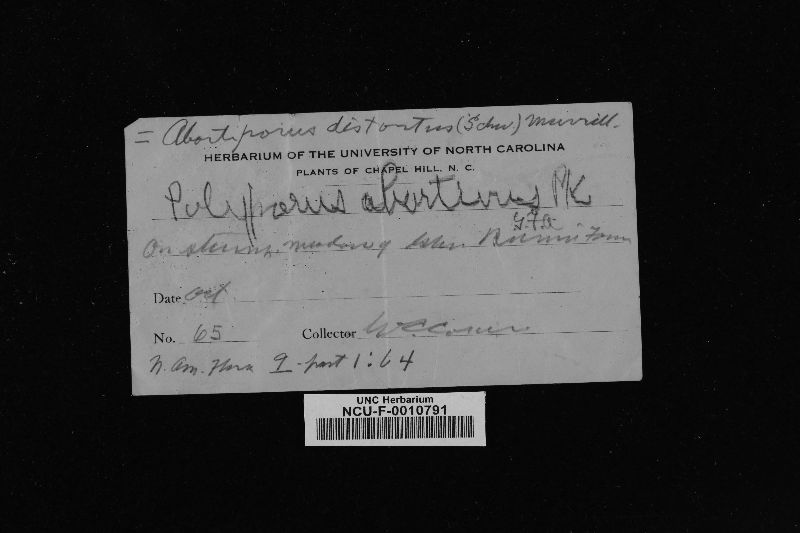 = Abortiporus distortus (Schw) Murrill.
HERBARIUM OF THE UNIVERSITY OF NORTH CAROLINA
PLANTS OF CHAPEL HILL, N. C.
Polyporus abortivus Pk
G.F.A
On stump, meadow of
Date Oct.
No. 65 Collector W.C. Coker.
N. Am. Flora 9 part 1:64
UNC Herbarium
NCU-F-0010791